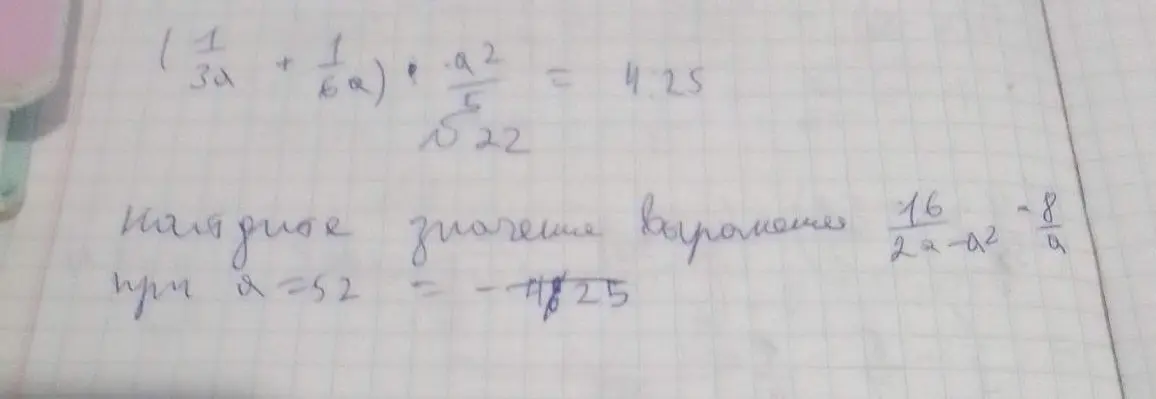 (1/3a + 1/6a) · a²/5 = 4.25
№22
Найдите значение выражения 16/2a-a² - 8/a
при a = 52 = -